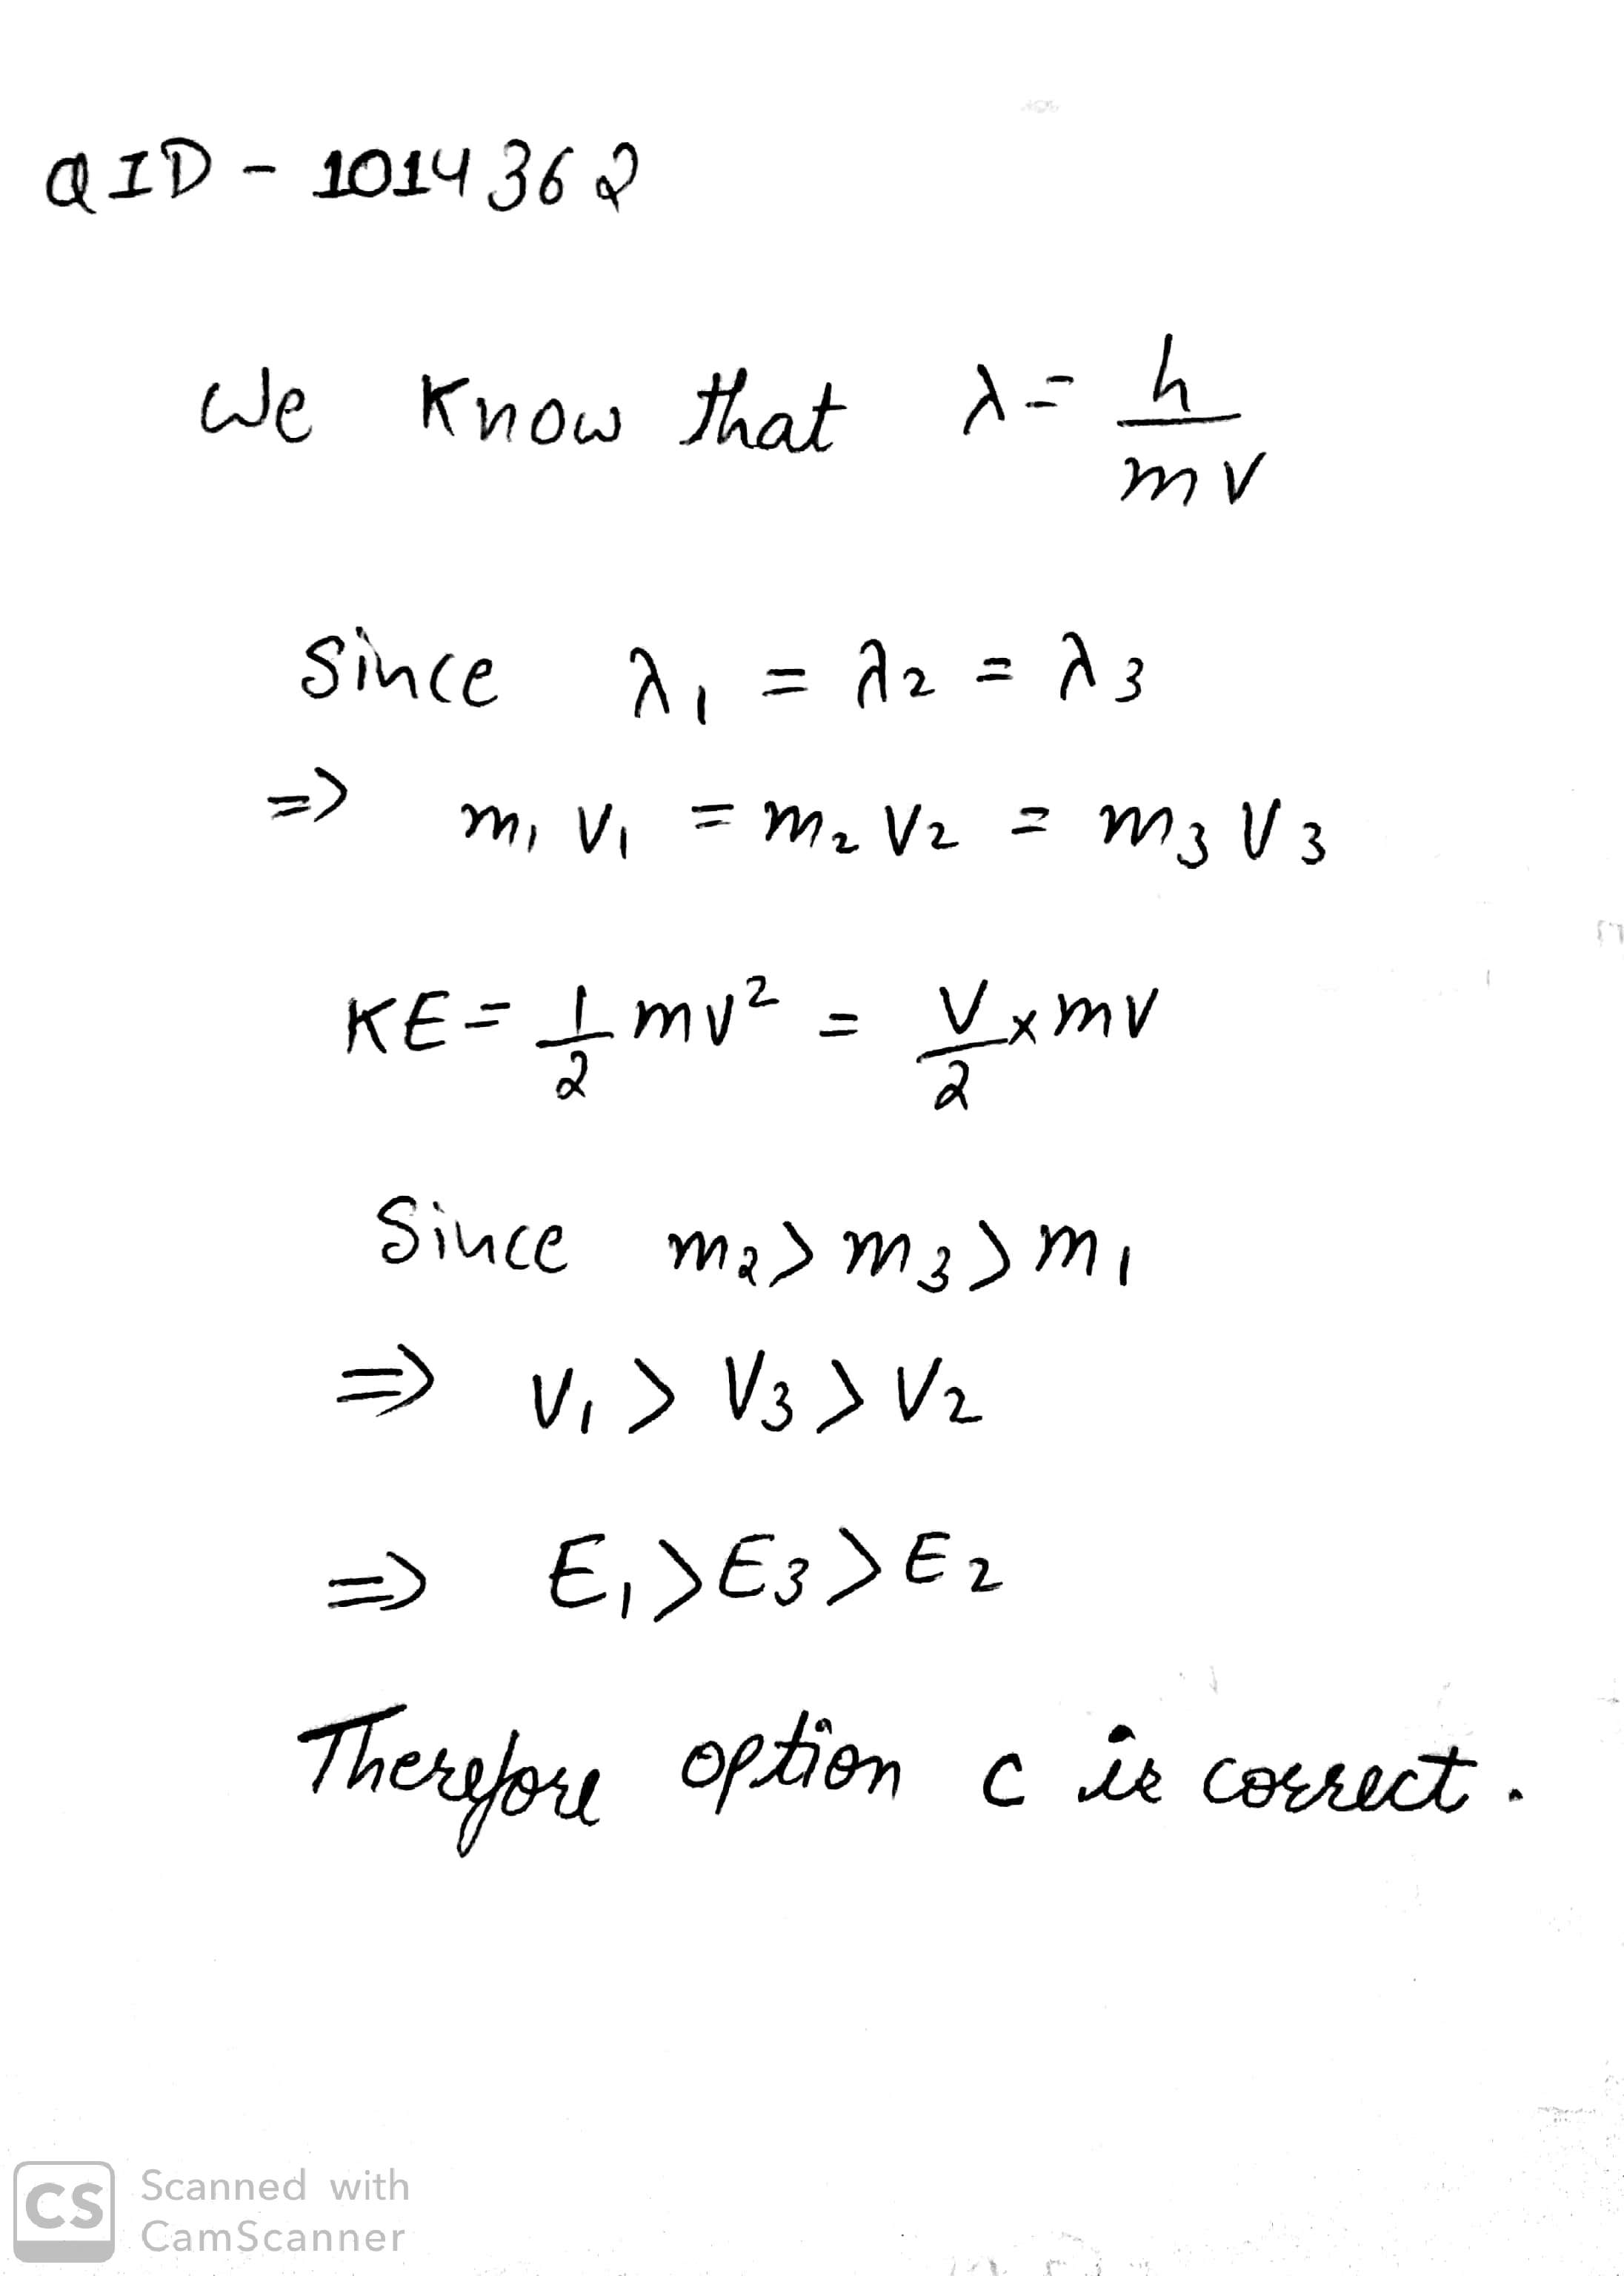 QID - 1014362
We know that λ = h/mv
Since λ₁ = λ₂ = λ₃
=> m₁v₁ = m₂v₂ = m₃v₃
KE = 1/2 mv² = v/2 × mv
Since m₂ > m₃ > m₁
=> v₁ > v₃ > v₂
=> E₁ > E₃ > E₂
Therefore option c is correct.
CS Scanned with
CamScanner